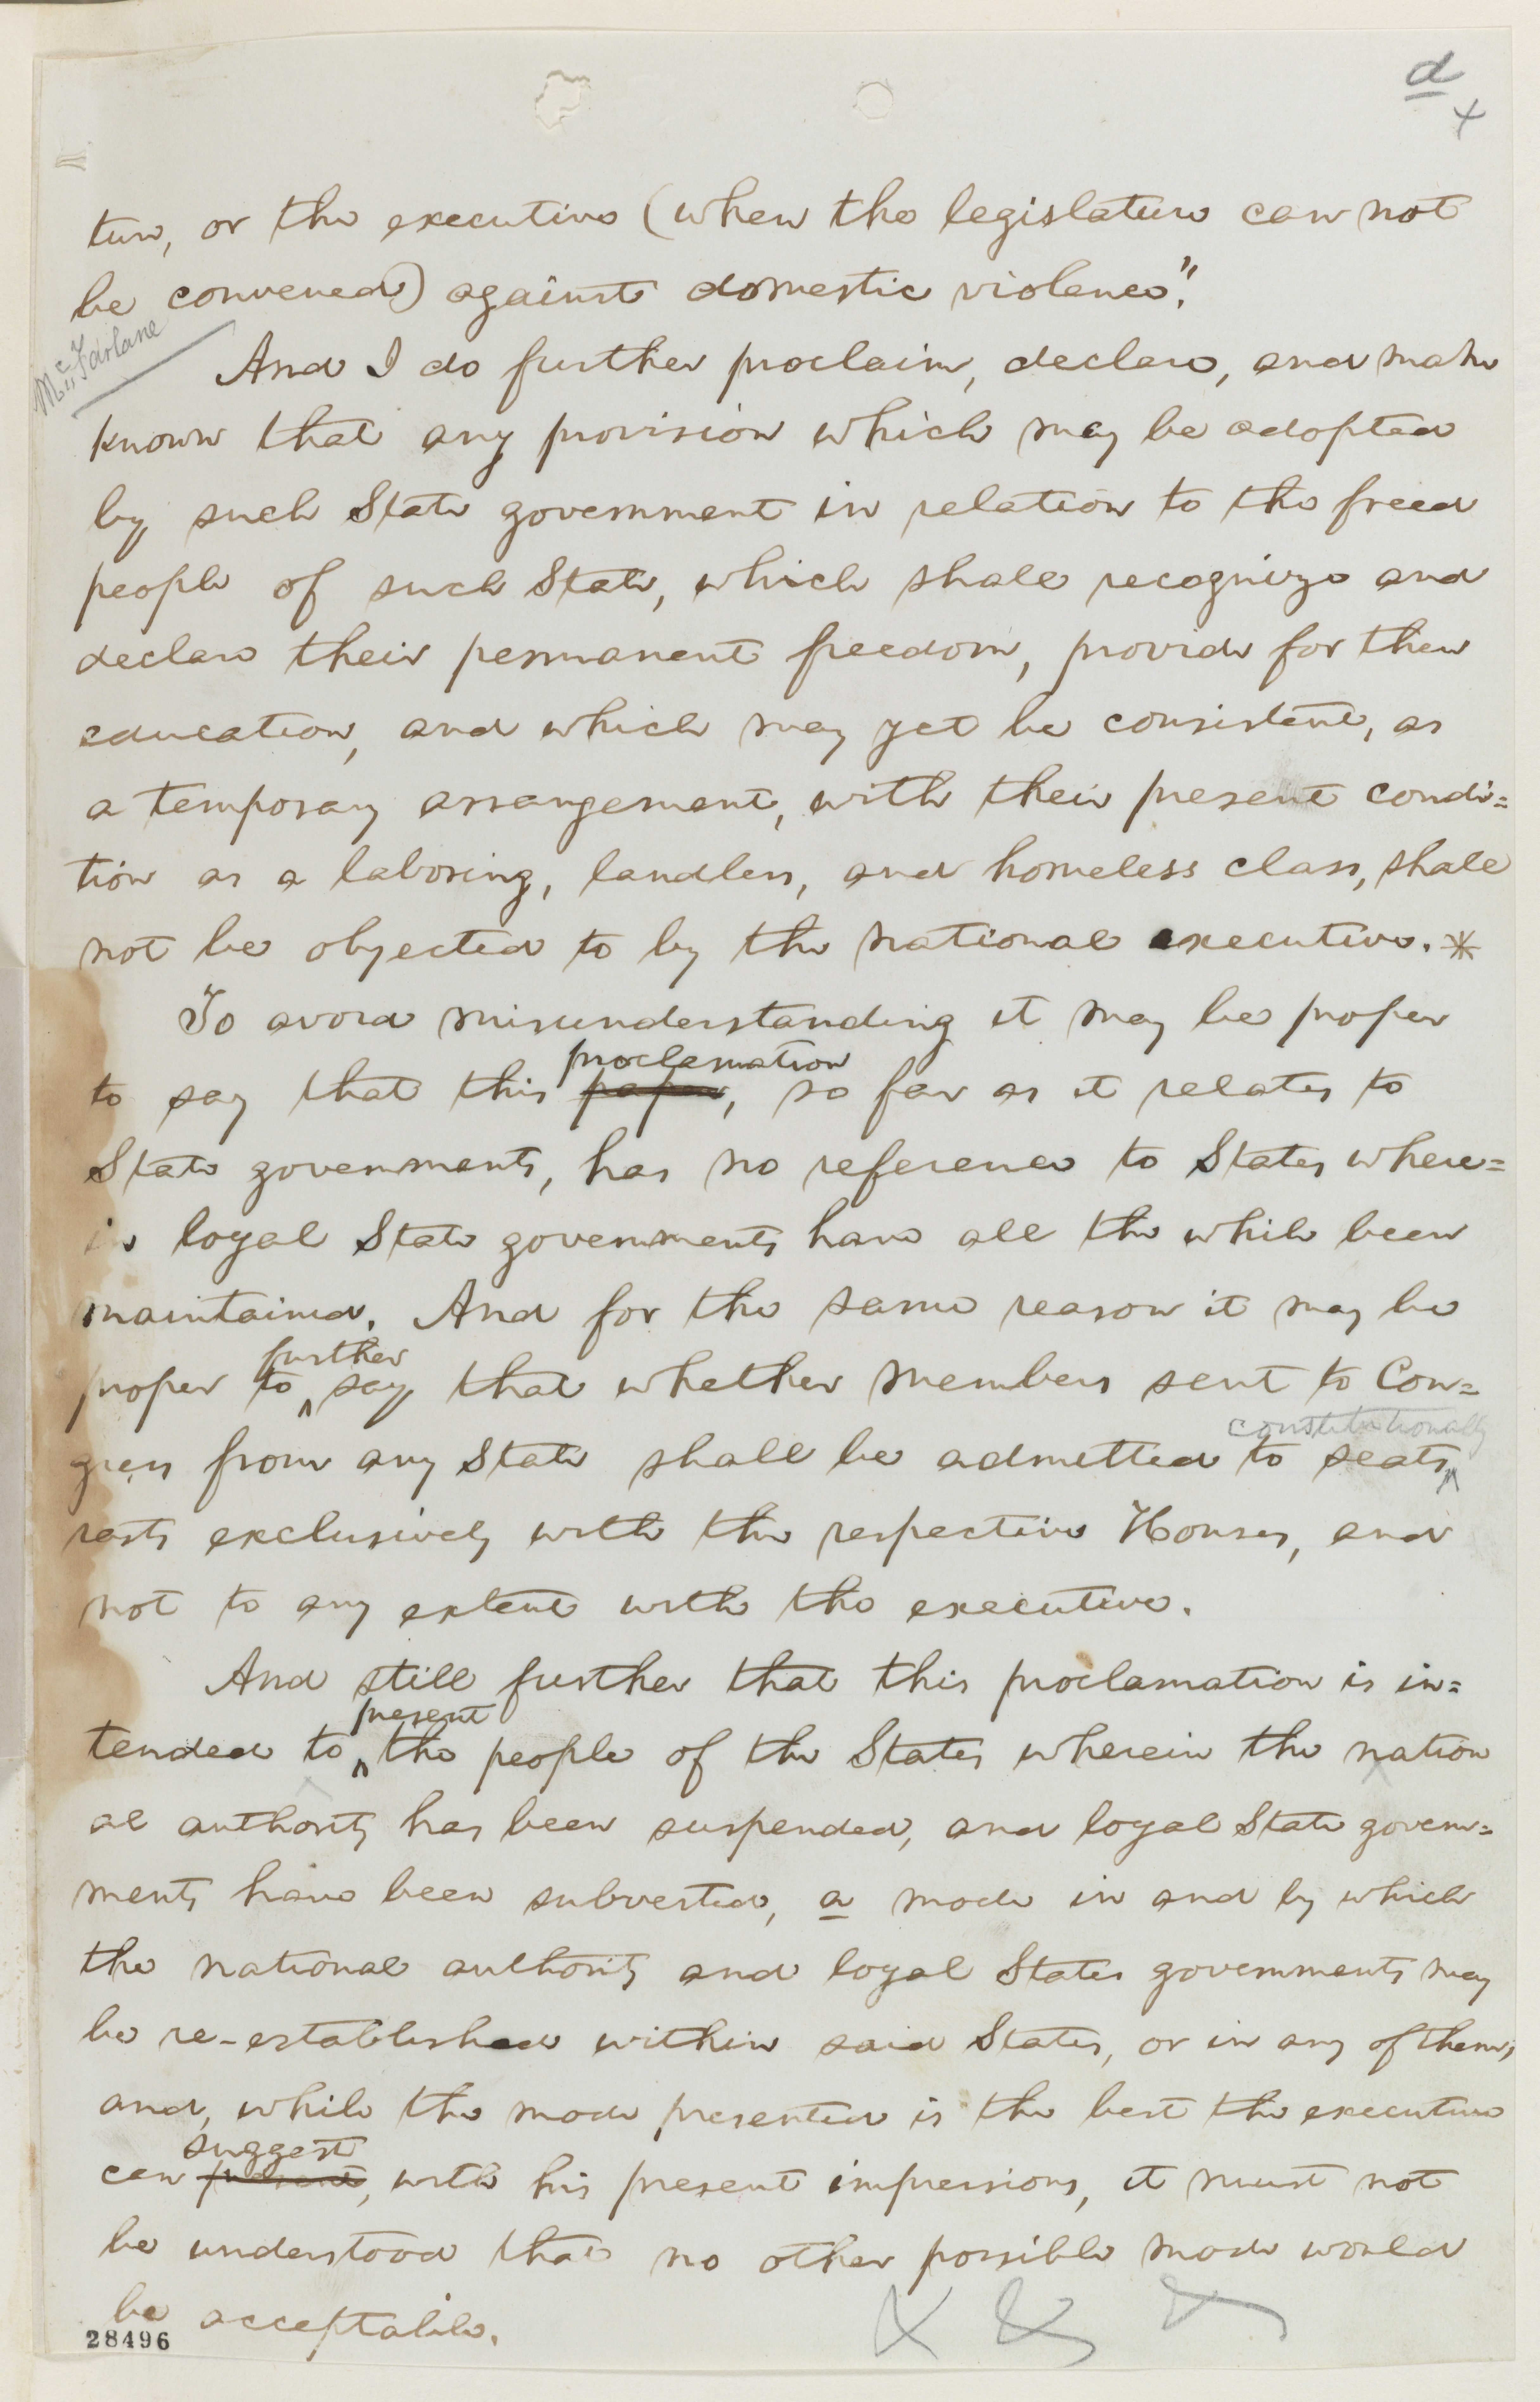 d
+
ture, or the executive (when the legislature can not
be convened) against domestic violence."
McFarlane
And I do further proclaim, declare, and make
known that any provision which may be adopted
by such State government in relation to the freed
people of such State, which shall recognize and
declare their permanent freedom, provide for their
education, and which may yet be consistent, as
a temporary arrangement, with their present condi=
tion as a laboring, landless, and homeless class, shall
not be objected to by the national executive. *
To avoid misunderstanding it may be proper
proclamation
to say that this paper, so far as it relates to
State governments, has no reference to States where=
in loyal State governments have all the while been
maintained. And for the same reason it may be
further
proper to ^ say that whether members sent to Con=
constitutionally
gress from any State shall be admitted to seats ^
rests exclusively with the respective Houses, and
not to any extent with the executive.
And still further that this proclamation is in=
present
tended to ^ the people of the States wherein the nation
al authority has been suspended, and loyal State govern=
ments have been subverted, a mode in and by which
the national authority and loyal States governments may
be re-established within said States, or in any of them;
and, while the mode presented is the best the executive
suggest
can present, with his present impressions, it must not
be understood that no other possible mode would
be acceptable.
28496